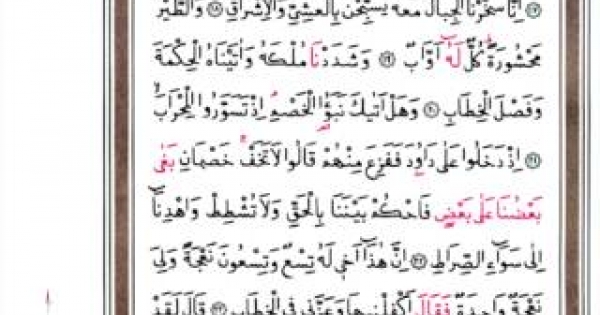 ﴿١٧﴾ اِنَّا سَخَّرْنَا الْجِبَالَ مَعَهُ يُسَبِّحْنَ بِالْعَشِيِّ وَالْاِشْرَاقِ ﴿١٨﴾ وَالطَّيْرَ
مَحْشُورَةً كُلٌّ لَهُ اَوَّابٌ ﴿١٩﴾ وَشَدَدْنَا مُلْكَهُ وَاٰتَيْنَاهُ الْحِكْمَةَ
وَفَصْلَ الْخِطَابِ ﴿٢٠﴾ وَهَلْ اَتٰيكَ نَبَؤُا الْخَصْمِ اِذْ تَسَوَّرُوا الْمِحْرَابَ
﴿٢١﴾ اِذْ دَخَلُوا عَلٰى دَاوُدَ فَفَزِعَ مِنْهُمْ قَالُوا لَا تَخَفْ خَصْمَانِ بَغٰى
بَعْضُنَا عَلٰى بَعْضٍ فَاحْكُمْ بَيْنَنَا بِالْحَقِّ وَلَا تُشْطِطْ وَاهْدِنَا
اِلٰى سَوَاءِ الصِّرَاطِ ﴿٢٢﴾ اِنَّ هٰذَا اَخِي لَهُ تِسْعٌ وَتِسْعُونَ نَعْجَةً وَلِيَ
نَعْجَةٌ وَاحِدَةٌ فَقَالَ اَكْفِلْنِيهَا وَعَزَّنِي فِي الْخِطَابِ ﴿٢٣﴾ قَالَ لَقَدْ